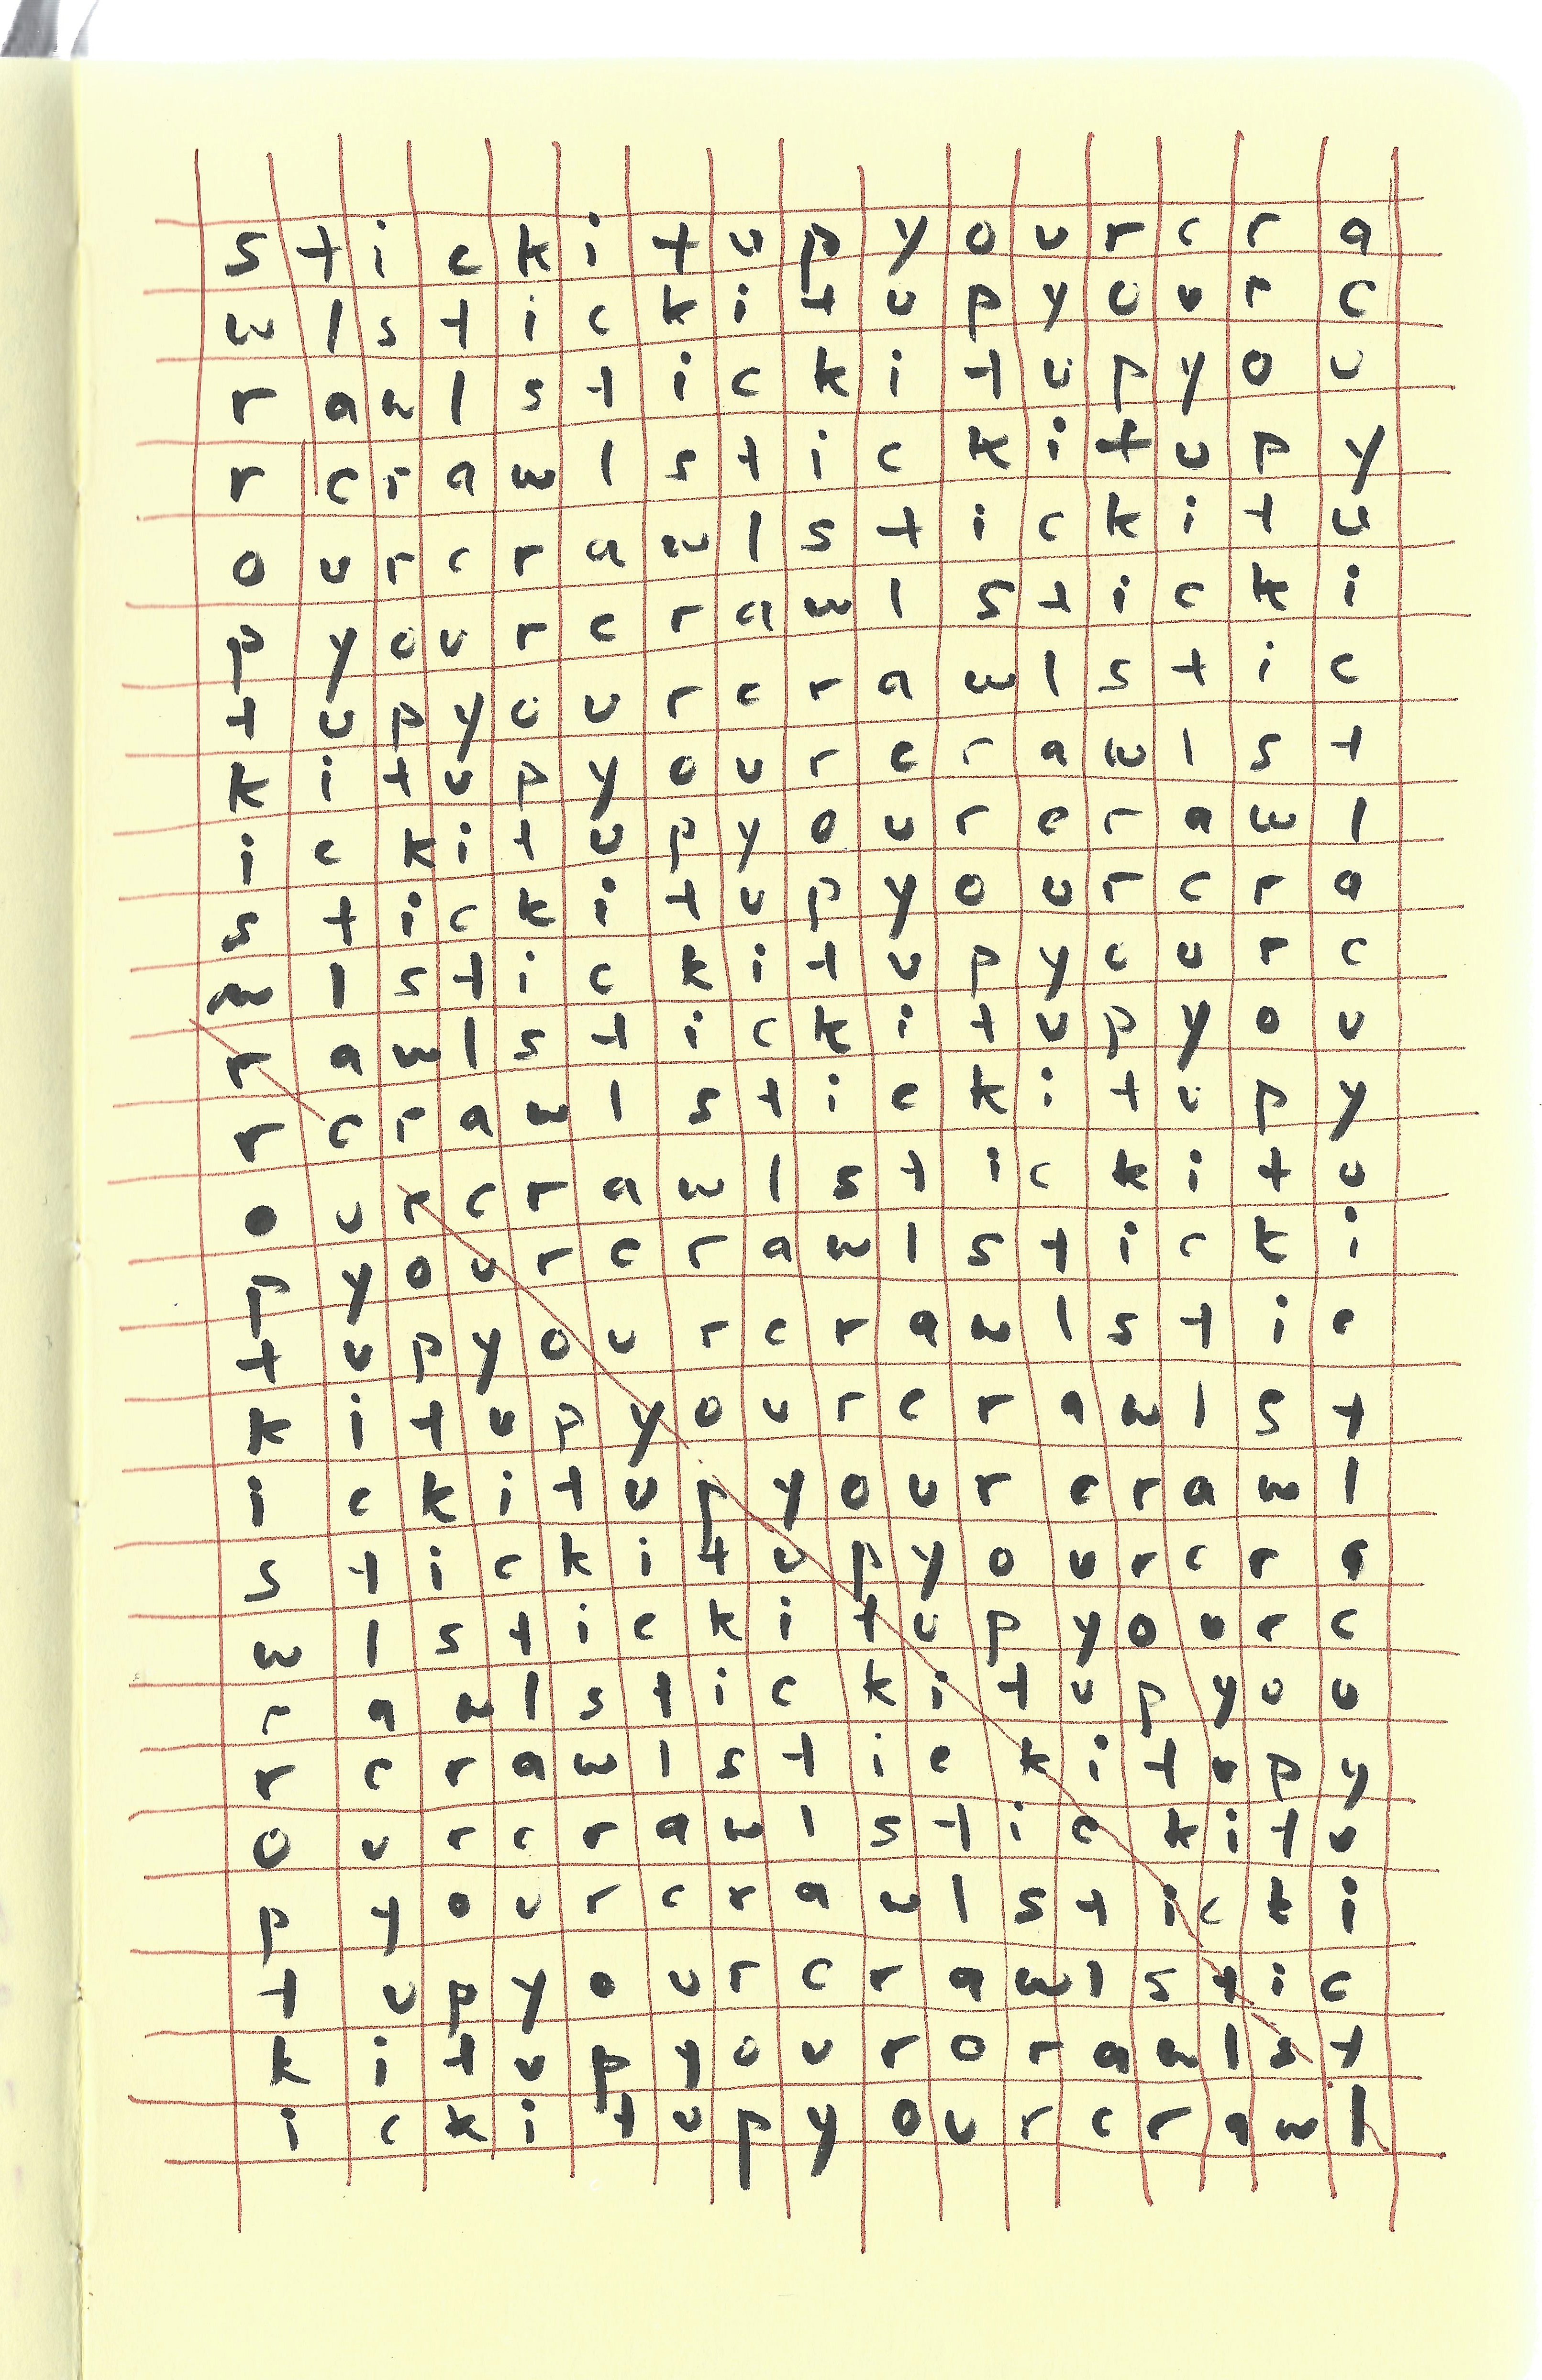 s t i c k i t u p y o u r c r a
w l s t i c k i t u p y o u r c
r a w l s t i c k i t u p y o u
r c r a w l s t i c k i t u p y
o u r c r a w l s t i c k i t u
p y o u r c r a w l s t i c k i
t u p y o u r c r a w l s t i c
k i t u p y o u r c r a w l s t
i c k i t u p y o u r c r a w l
s t i c k i t u p y o u r c r a
w l s t i c k i t u p y o u r c
r a w l s t i c k i t u p y o u
r c r a w l s t i c k i t u p y
o u r c r a w l s t i c k i t u
p y o u r c r a w l s t i c k i
t u p y o u r c r a w l s t i c
k i t u p y o u r c r a w l s t
i c k i t u p y o u r c r a w l
s t i c k i t u p y o u r c r a
w l s t i c k i t u p y o u r c
r a w l s t i c k i t u p y o u
r c r a w l s t i c k i t u p y
o u r c r a w l s t i c k i t u
p y o u r c r a w l s t i c k i
t u p y o u r c r a w l s t i c
k i t u p y o u r o r a w l s t
i c k i t u p y o u r c r a w l